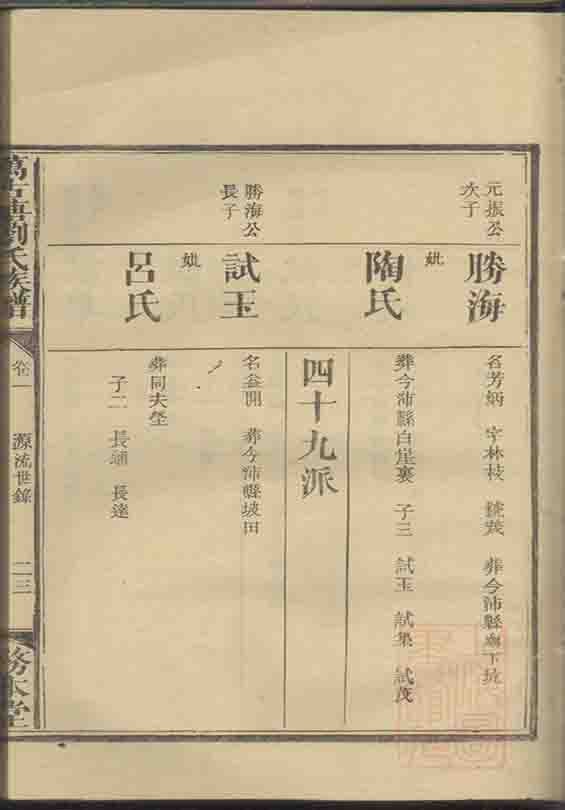 元振公
次子
勝海
名芳炳 字林枝 號茂 葬今沛縣下坑
妣
陶氏
葬今沛縣白崖裏 子三 試玉 試集 試茂
四十九派
勝海公
長子
試玉
名益開 葬今沛縣坡田
妣
呂氏
葬同夫塋
子二 長通 長達
萬古塘劉氏族譜
卷一
源流世錄
二三
務本堂